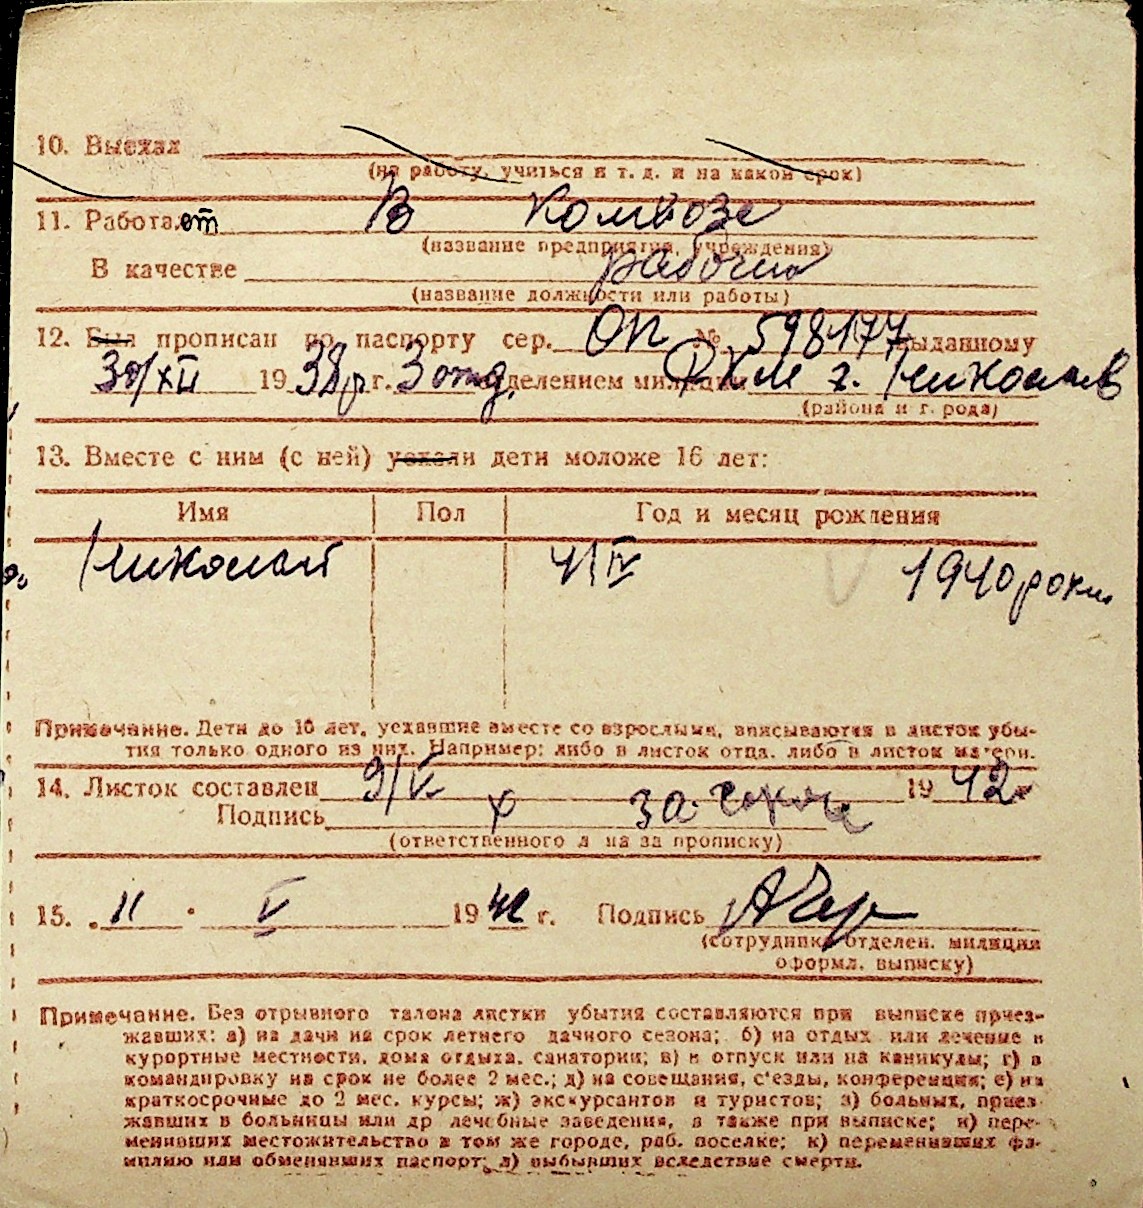 10. Выехал
(на работу, учиться и т. д. и на какой срок)
11. Работает В Комхозе
(название предприятия, учреждения)
В качестве рабочий
(название должности или работы)
12. Был прописан по паспорту сер. ОП № 598177 выданному
30/XII 1938р г. 3 отд. делением милиции РКМ г. Николаев
(района и г. рода)
13. Вместе с ним (с ней) уехали дети моложе 16 лет:
Имя Пол Год и месяц рождения
Николай 4/IV 1940 роки
Примечание. Дети до 16 лет, уехавшие вместе со взрослыми, вписываются в листок убы-
тия только одного из них. Например: либо в листок отца, либо в листок матери.
14. Листок составлен 9/V 1942
Подпись х за
(ответственного л на за прописку)
15. " 11 " V 1942 г. Подпись
(сотрудника отделен. милиции
оформл. выписку)
Примечание. Без отрывного талона листки убытия составляются при выписке приез-
жавших: а) на дачи на срок летнего дачного сезона; б) на отдых или лечение в
курортные местности, дома отдыха, санатории; в) в отпуск или на каникулы; г) в
командировку на срок не более 2 мес.; д) на совещания, с'езды, конференции; е) на
краткосрочные до 2 мес. курсы; ж) экскурсантов и туристов; з) больных, приез-
жавших в больницы или др лечебные заведения, а также при выписке; и) пере-
менивших местожительство в том же городе, раб. поселке; к) переменивших фа-
милию или обменявших паспорт; л) выбывших вследствие смерти.